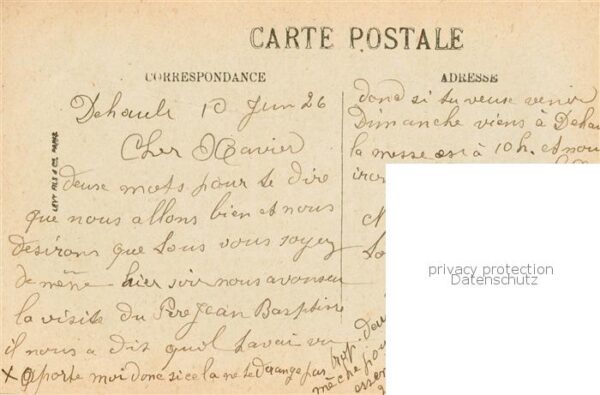 CARTE POSTALE
CORRESPONDANCE
ADRESSE
LEVY FILS & Cie PARIS
Dehault 10 Juin 26
Cher Xavier
deuse mots pour te dire
que nous allons bien et nous
désirons que tous vous soyez
de même hier soir nous avons eu
la visite du Père Jean Basptine
il nous a dit quil tavai vu
x aporte moi donc si ce la ne te dérange pas trop deu
mèche pou
donc si tu veuse venir
Dimanche viens à Dehau
la messe est à 10 h. et nou
iron
privacy protection
Datenschutz